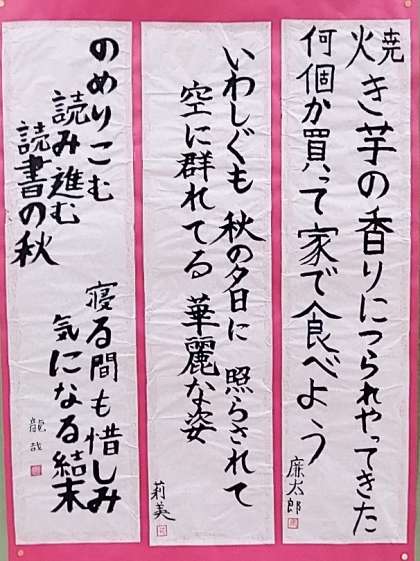 焼き芋の香りにつられやってきた
何個か買って家で食べよう
廉太郎
いわしぐも 秋の夕日に 照らされて
空に群れてる 華麗な姿
莉美
のめりこむ
読み進む
読書の秋
寝る間も惜しみ
気になる結末
龍哉